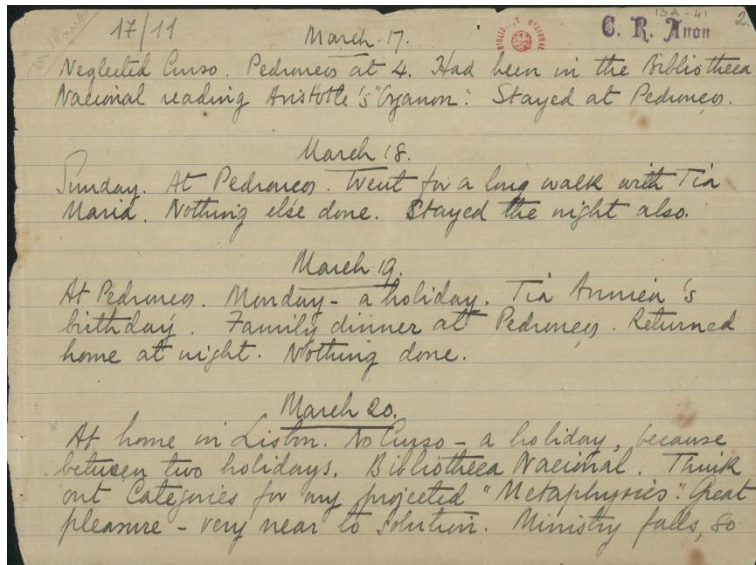 17/11
March 17.
BIBLIOTECA NACIONAL
C. R. Anon
13A-41
2
Neglected Curso. Pedrouços at 4. Had been in the Bibliotheca
Nacional reading Aristotle's "Organon". Stayed at Pedrouços.
March 18.
Sunday. At Pedrouços. Went for a long walk with Tia
Maria. Nothing else done. Stayed the night also.
March 19.
At Pedrouços. Monday - a holiday. Tia Annica's
birthday. Family dinner at Pedrouços. Returned
home at night. Nothing done.
March 20.
At home in Lisbon. No Curso - a holiday, because
between two holidays. Bibliotheca Nacional. Think
out Categories for my projected "Metaphysics". Great
pleasure - very near to solution. Ministry falls, so